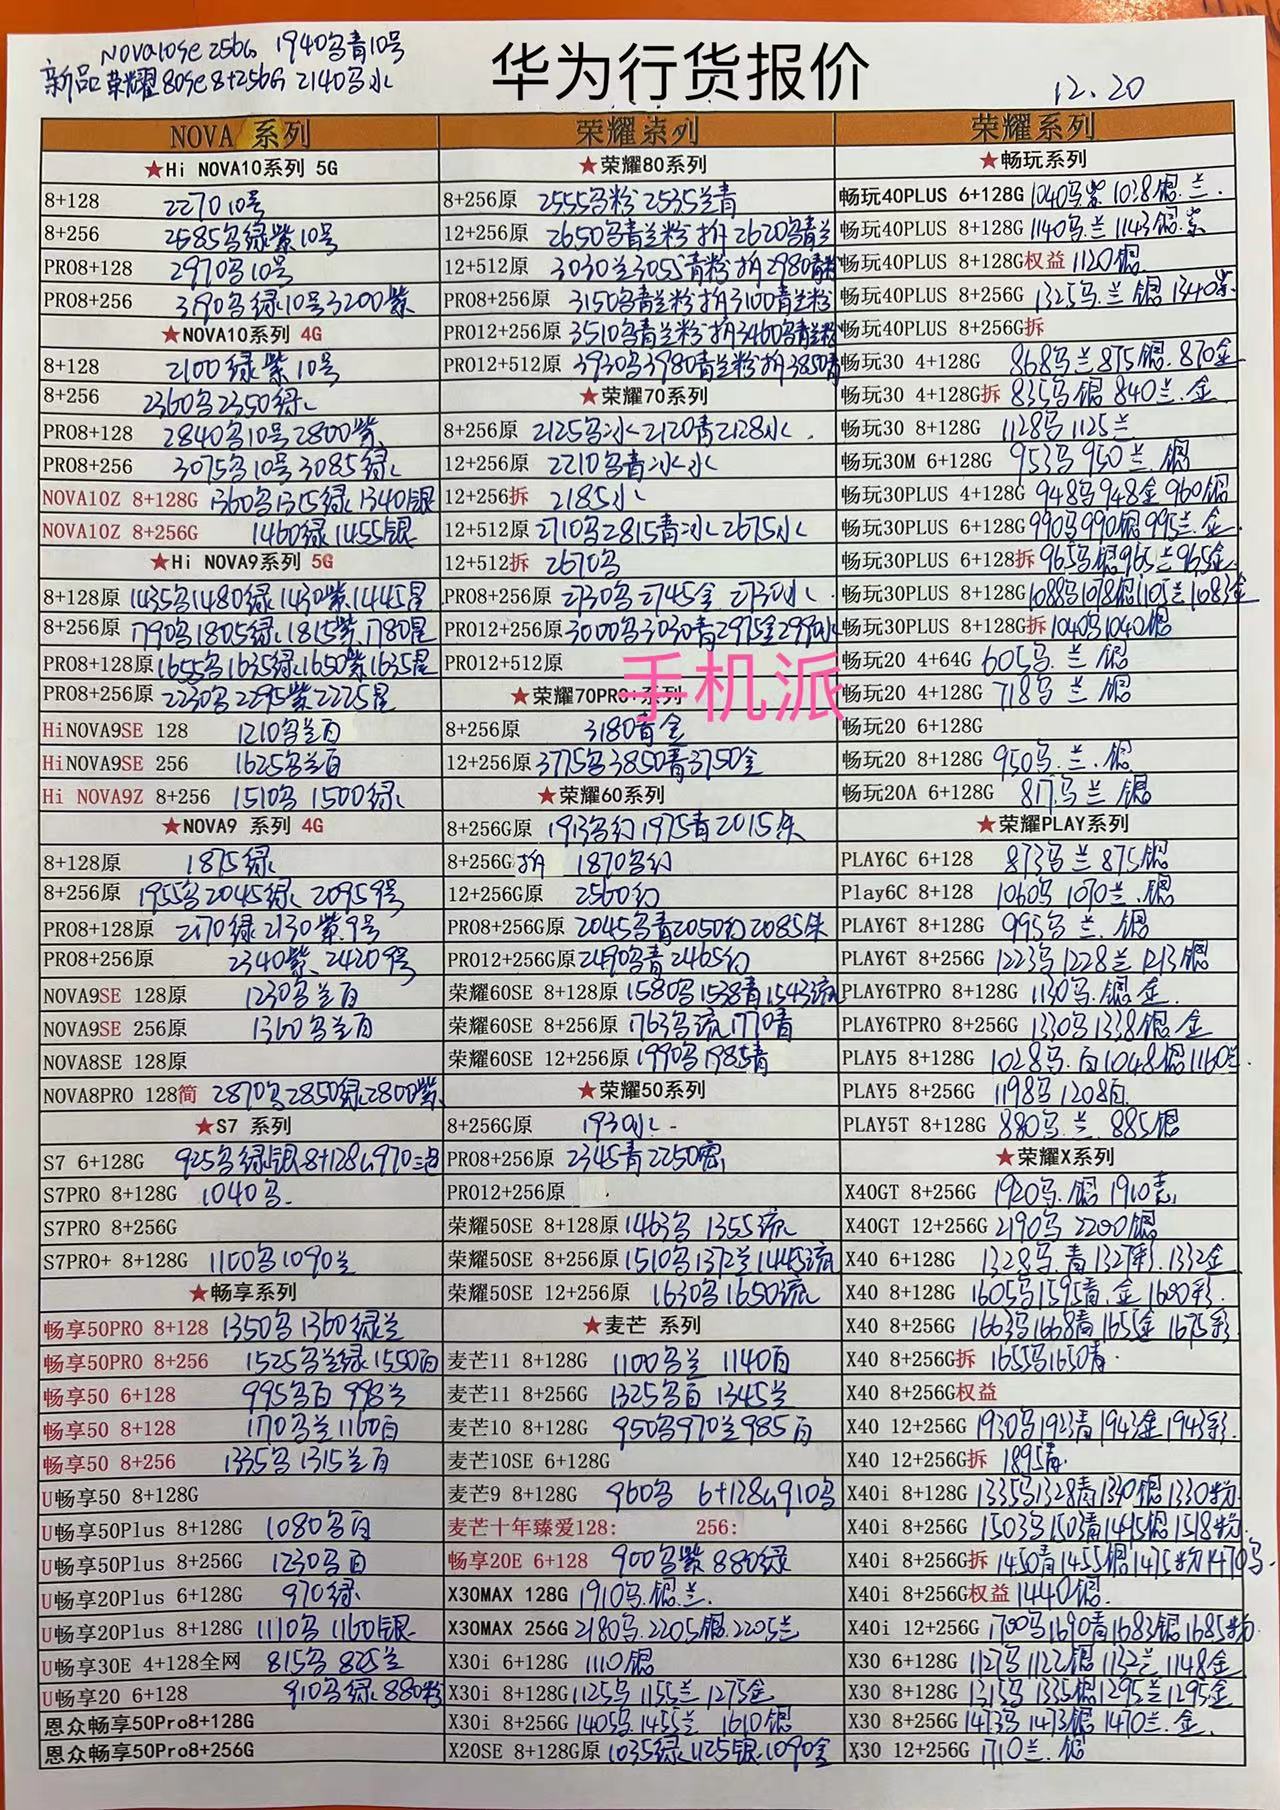 NOVA10se 256G 1940乌青10号
新品荣耀80se 8+256G 2140乌水
华为行货报价
12.20
NOVA 系列
★Hi NOVA10系列 5G
8+128 2270 10号
8+256 2585乌绿紫10号
PRO8+128 2970乌10号
PRO8+256 3190乌绿10号3200紫
★NOVA10系列 4G
8+128 2100绿紫10号
8+256 2360乌2350绿
PRO8+128 2840乌10号2800紫
PRO8+256 3075乌10号3085绿
NOVA10Z 8+128G 1360乌1315绿1340银
NOVA10Z 8+256G 1460绿1455银
★Hi NOVA9系列 5G
8+128原 1435乌1480绿1430紫1445星
8+256原 1790乌1805绿1815紫1780星
PRO8+128原 1655乌1635绿1650紫1635星
PRO8+256原 2230乌2295紫2225星
HiNOVA9SE 128 1210乌兰白
HiNOVA9SE 256 1625乌兰白
Hi NOVA9Z 8+256 1510乌1500绿
★NOVA9 系列 4G
8+128原 1875绿
8+256原 1955乌2045绿2095 9号
PRO8+128原 2170绿2130紫9号
PRO8+256原 2340紫2420 9号
NOVA9SE 128原 1230乌兰白
NOVA9SE 256原 1360乌兰白
NOVA8SE 128原
NOVA8PRO 128简 2870乌2850绿2800紫
★S7 系列
S7 6+128G 925乌绿银 8+128G 970三色
S7PRO 8+128G 1040乌
S7PRO 8+256G
S7PRO+ 8+128G 1100乌1090兰
★畅享系列
畅享50PRO 8+128 1350乌1360绿兰
畅享50PRO 8+256 1525乌兰绿1550白
畅享50 6+128 995乌白 998兰
畅享50 8+128 1170乌兰1160白
畅享50 8+256 1335乌1315兰白
U畅享50 8+128G
U畅享50Plus 8+128G 1080乌白
U畅享50Plus 8+256G 1230乌白
U畅享20Plus 6+128G 970绿
U畅享20Plus 8+128G 1110乌1160银
U畅享30E 4+128全网 815乌825兰
U畅享20 6+128 910乌绿880粉
恩众畅享50Pro8+128G
恩众畅享50Pro8+256G
荣耀系列
★荣耀80系列
8+256原 2555乌粉2535兰青
12+256原 2650乌青兰粉 拆2620乌青兰
12+512原 3030兰3055青粉 拆2980青粉
PRO8+256原 3150乌青兰粉拆3100青兰粉
PRO12+256原 3510乌青兰粉拆3460乌青兰粉
PRO12+512原 3930乌3980青兰粉拆3850青
★荣耀70系列
8+256原 2125乌冰2120青2128水
12+256原 2210乌青冰水
12+256拆 2185水
12+512原 2710乌2815青冰2675水
12+512拆 2670乌
PRO8+256原 2730乌2745金 2730冰
PRO12+256原 3000乌3030青2975金2990冰
PRO12+512原
手机派
★荣耀70PRO+系列
8+256原 3180青金
12+256原 3775乌3850青3750金
★荣耀60系列
8+256G原 1913乌幻1975青2015朱
8+256G拆 1870乌幻
12+256G原 2560幻
PRO8+256G原 2045乌青2050幻2085朱
PRO12+256G原 2490乌青2465幻
荣耀60SE 8+128原 1580乌1538青1543流
荣耀60SE 8+256原 1763乌流1770青
荣耀60SE 12+256原 1990乌1985青
★荣耀50系列
8+256G原 1930水
PRO8+256原 2345青2250密
PRO12+256原
荣耀50SE 8+128原 1463乌 1355流
荣耀50SE 8+256原 1510乌1372兰1445流
荣耀50SE 12+256原 1630乌1650流
★麦芒 系列
麦芒11 8+128G 1100乌兰 1140白
麦芒11 8+256G 1325乌白 1345兰
麦芒10 8+128G 950乌970兰985白
麦芒10SE 6+128G
麦芒9 8+128G 960乌 6+128G 910乌
麦芒十年臻爱128: 256:
畅享20E 6+128 900乌紫880绿
X30MAX 128G 1910乌.银.兰.
X30MAX 256G 2180乌.2205银.2205兰
X30i 6+128G 1110银
X30i 8+128G 1125乌 1155兰 1275金
X30i 8+256G 1405乌.1455兰 1610银
X20SE 8+128G原 1035绿1125银1090金
荣耀系列
★畅玩系列
畅玩40PLUS 6+128G 1040乌.紫 1038银.兰.
畅玩40PLUS 8+128G 1140乌.兰 1143银.紫
畅玩40PLUS 8+128G权益 1120银
畅玩40PLUS 8+256G 1325乌.兰 银 1340紫.
畅玩40PLUS 8+256G拆
畅玩30 4+128G 868乌兰875银.870金
畅玩30 4+128G拆 835乌银 840兰.金
畅玩30 8+128G 1128乌1125兰
畅玩30M 6+128G 953乌950兰.银
畅玩30PLUS 4+128G 948乌948金960银
畅玩30PLUS 6+128G 990乌990银995兰.金.
畅玩30PLUS 6+128拆 965乌银965兰965金
畅玩30PLUS 8+128G 1088乌1078银1105兰1083金
畅玩30PLUS 8+128G拆 1040乌1040银
畅玩20 4+64G 605乌.兰 银
畅玩20 4+128G 718乌兰 银
畅玩20 6+128G
畅玩20 8+128G 950乌.兰.银
畅玩20A 6+128G 817乌兰 银
★荣耀PLAY系列
PLAY6C 6+128 873乌兰875银
Play6C 8+128 1060乌 1070兰.银
PLAY6T 8+128G 995乌兰.银
PLAY6T 8+256G 1223乌1228兰1213银
PLAY6TPRO 8+128G 1130乌.银金.
PLAY6TPRO 8+256G 1330乌1338银.金
PLAY5 8+128G 1028乌.白1048银1160兰.
PLAY5 8+256G 1198乌 1208白
PLAY5T 8+128G 880乌.兰.885银
★荣耀X系列
X40GT 8+256G 1920乌.银 1910竞
X40GT 12+256G 2190乌 2200银
X40 6+128G 1328乌.青1327彩.1332金
X40 8+128G 1605乌1595青.金 1600彩.
X40 8+256G 1663乌1668青1655金 1675彩
X40 8+256G拆 1655乌1650青.
X40 8+256G权益
X40 12+256G 1930乌1923青1943金1943彩.
X40 12+256G拆 1895青.
X40i 8+128G 1335乌1328青1330银1330粉
X40i 8+256G 1503乌1503青1495银1518粉
X40i 8+256G拆 1450青1455银1475粉1470乌.
X40i 8+256G权益 1440银.
X40i 12+256G 1700乌1690青1683银1685粉
X30 6+128G 1127乌1122银1132兰1148金
X30 8+128G 1315乌1335银1295兰1295金
X30 8+256G 1473乌1473银1470兰.金.
X30 12+256G 1710兰.银